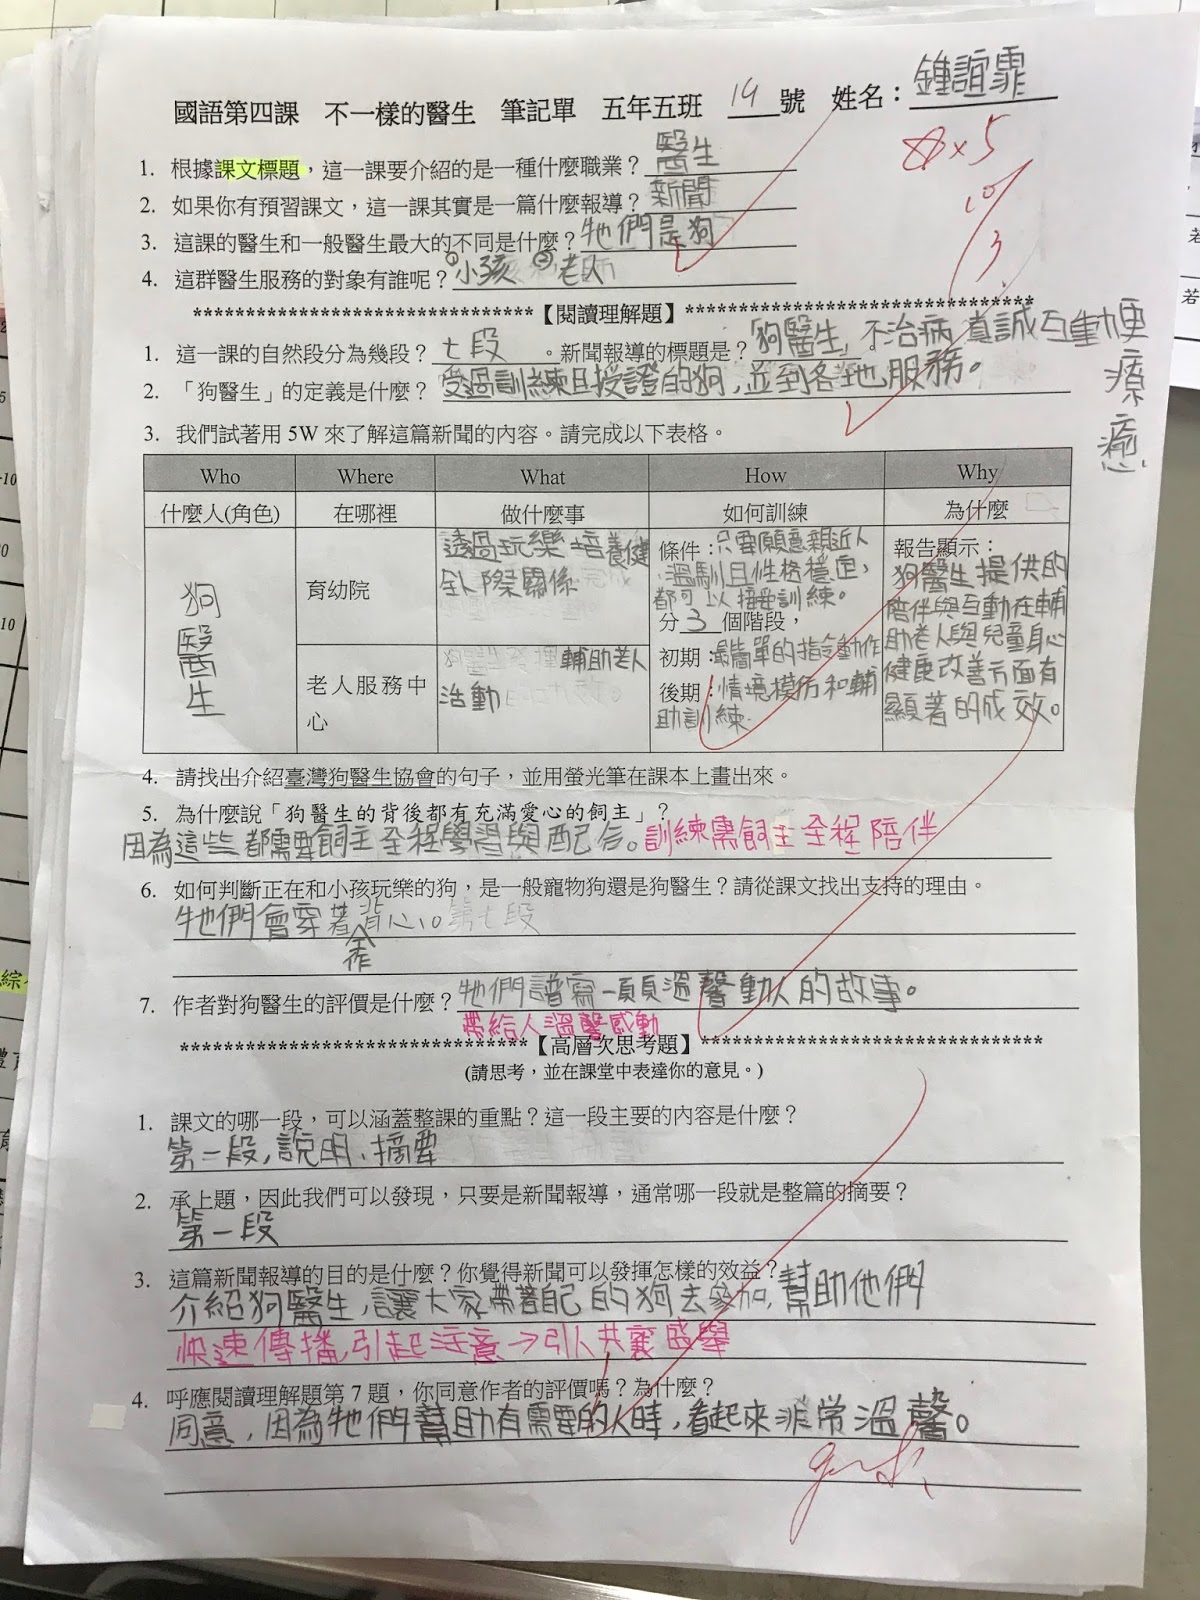 國語第四課 不一樣的醫生 筆記單 五年五班 19 號 姓名：鍾誼霏
☆×5
10/3.
1. 根據課文標題，這一課要介紹的是一種什麼職業？醫生
2. 如果你有預習課文，這一課其實是一篇什麼報導？新聞
3. 這課的醫生和一般醫生最大的不同是什麼？牠們是狗
4. 這群醫生服務的對象有誰呢？①小孩 ②老人
********************************【閱讀理解題】*********************************
1. 這一課的自然段分為幾段？七段。新聞報導的標題是？狗醫生，不治病 真誠互動便療癒
2. 「狗醫生」的定義是什麼？受過訓練且授證的狗，並到各地服務。
3. 我們試著用 5W 來了解這篇新聞的內容。請完成以下表格。
Who Where What How Why
什麼人(角色) 在哪裡 做什麼事 如何訓練 為什麼
狗醫生
育幼院
透過玩樂培養健
全人際關係
老人服務中
心
輔助老人
活動
條件：只要願意親近人
溫馴且性格穩定，
都可以接受訓練。
分3個階段，
初期：最簡單的指令動作
後期：情境模仿和輔
助訓練
報告顯示：
狗醫生提供的
陪伴與互動在輔
助老人與兒童身心
健康改善方面有
顯著的成效。
4. 請找出介紹臺灣狗醫生協會的句子，並用螢光筆在課本上畫出來。
5. 為什麼說「狗醫生的背後都有充滿愛心的飼主」？
因為這些都需要飼主全程學習與配合。訓練需飼主全程陪伴
6. 如何判斷正在和小孩玩樂的狗，是一般寵物狗還是狗醫生？請從課文找出支持的理由。
牠們會穿著背心。第七段
7. 作者對狗醫生的評價是什麼？牠們譜寫一頁頁溫馨動人的故事。
帶給人溫馨感動
********************************【高層次思考題】********************************
(請思考，並在課堂中表達你的意見。)
1. 課文的哪一段，可以涵蓋整課的重點？這一段主要的內容是什麼？
第一段，說明、摘要
2. 承上題，因此我們可以發現，只要是新聞報導，通常哪一段就是整篇的摘要？
第一段
3. 這篇新聞報導的目的是什麼？你覺得新聞可以發揮怎樣的效益？
介紹狗醫生，讓大家帶著自己的狗去參加，幫助他們
快速傳播，引起注意→引人共襄盛舉
4. 呼應閱讀理解題第 7 題，你同意作者的評價嗎？為什麼？
同意，因為牠們幫助有需要的人時，看起來非常溫馨。